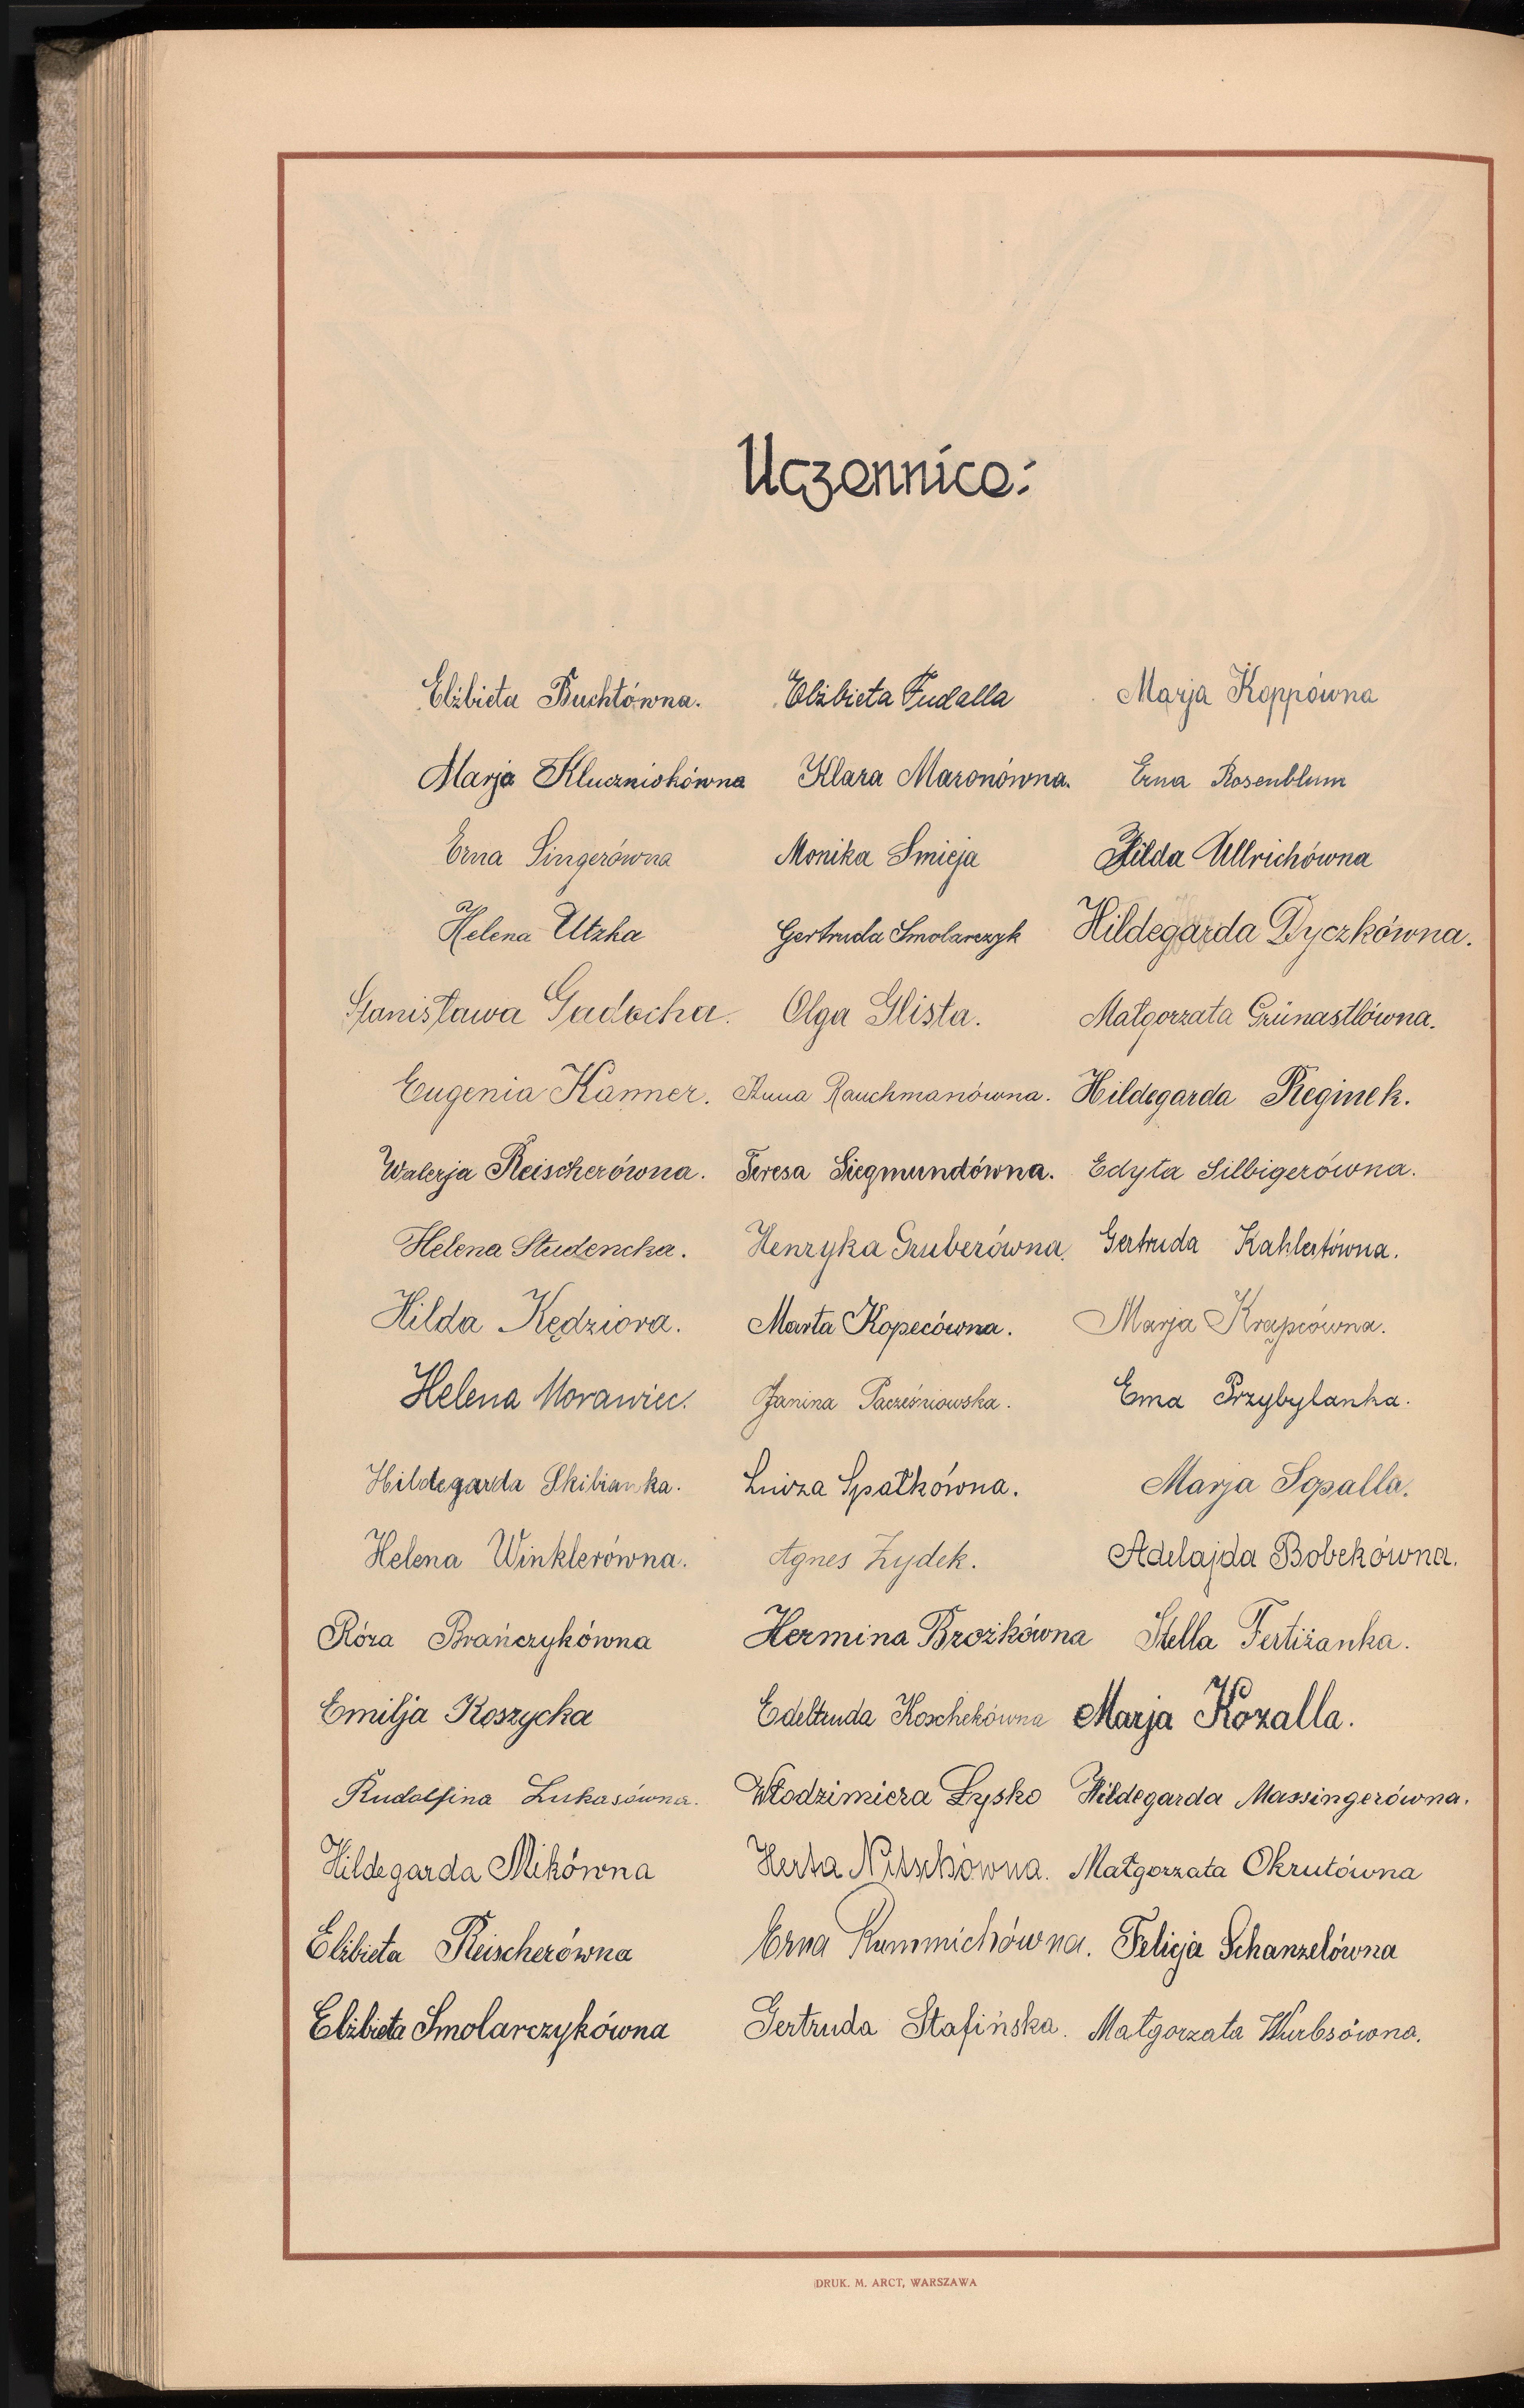 Uczennice:
Elżbieta Buchtówna. Elżbieta Fudalla Marja Koppówna
Marja Kluczniokówna Klara Maronówna. Erna Rosenblum
Erna Singerówna Monika Smieja Hilda Ullrichówna
Helena Utzka Gertruda Smolarczyk Hildegarda Dyczkówna.
Stanisława Gadocha. Olga Glista. Małgorzata Grünastlówna.
Eugenia Kanner. Anna Rauchmanówna. Hildegarda Reginek.
Walerja Reischerówna. Teresa Siegmundówna. Edyta Silbigerówna.
Helena Studencka. Henryka Gruberówna. Gertruda Kahlertówna.
Hilda Kędziora. Marta Kopecówna. Marja Krąpcówna.
Helena Morawiec. Janina Pacześniowska. Ema Przybylanka.
Hildegarda Skibianka. Luiza Spałkówna. Marja Sopalla.
Helena Winklerówna. Agnes Żydek. Adelajda Bobekówna.
Róża Brańczykówna Hermina Brożkówna Stella Fertiżanka.
Emilja Koszycka Edeltruda Koschekówna Marja Kozalla.
Rudolfina Lukasówna. Włodzimiera Łysko Hildegarda Massingerówna.
Hildegarda Mikówna Herta Nitschówna. Małgorzata Okrutówna
Elżbieta Reischerówna Erna Rummichówna. Felicja Schanzelówna
Elżbieta Smolarczykówna Gertruda Stafińska. Małgorzata Wurbsówna.
DRUK. M. ARCT, WARSZAWA